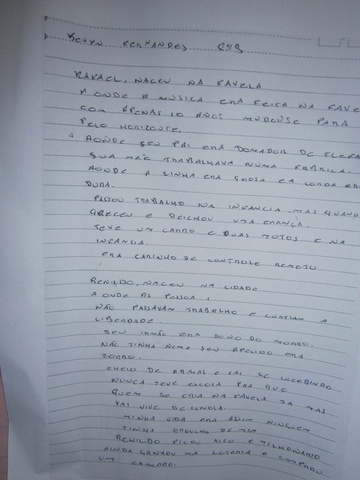 FERNANDES
RAFAEL, NACEU NA FAVELA
AONDE A MUSICA ERA FEITA NA FAVE
COM APENAS 10 ANOS MUDOUSE PARA
BELO HORIZONTE.
AONDE SEU PAI ERA DOMADOR DE
SUA MÃE TRABALHAVA NUMA FABRICA.
AONDE A LINHA ERA GROSA E A CORDA ERA
DURA.
TRABALHO NA INFANCIA MAS QUANDO
CRECEU E DEICHOU UMA CRIANÇA.
TEVE UM CARRO E DUAS MOTOS E NA
INFANCIA
ERA CARINHO DE CONTROLE REMOTO
RENILDO, NACEU NA CIDADE
AONDE AS
NÃO TRABALHO E A
LIBERDADE.
SEU IRMÃO ERA DONO DO MORRO.
NÃO TINHA NOME SEU APELIDO ERA
ZORRO.
CHEIO DE E SAI SE
NUNCA TEVE ESCOLA
QUEM SE CRIA NA FAVELA JA MAS
VAI VIVE DE ESMOLA.
MINHA VIDA ERA ASIM NINGUEM
TINHA ORGULHO DE MIM
RENILDO FICOU RICO E MILHONARIO
AINDA GANHOU NA LOTERIA E COMPROU
UM